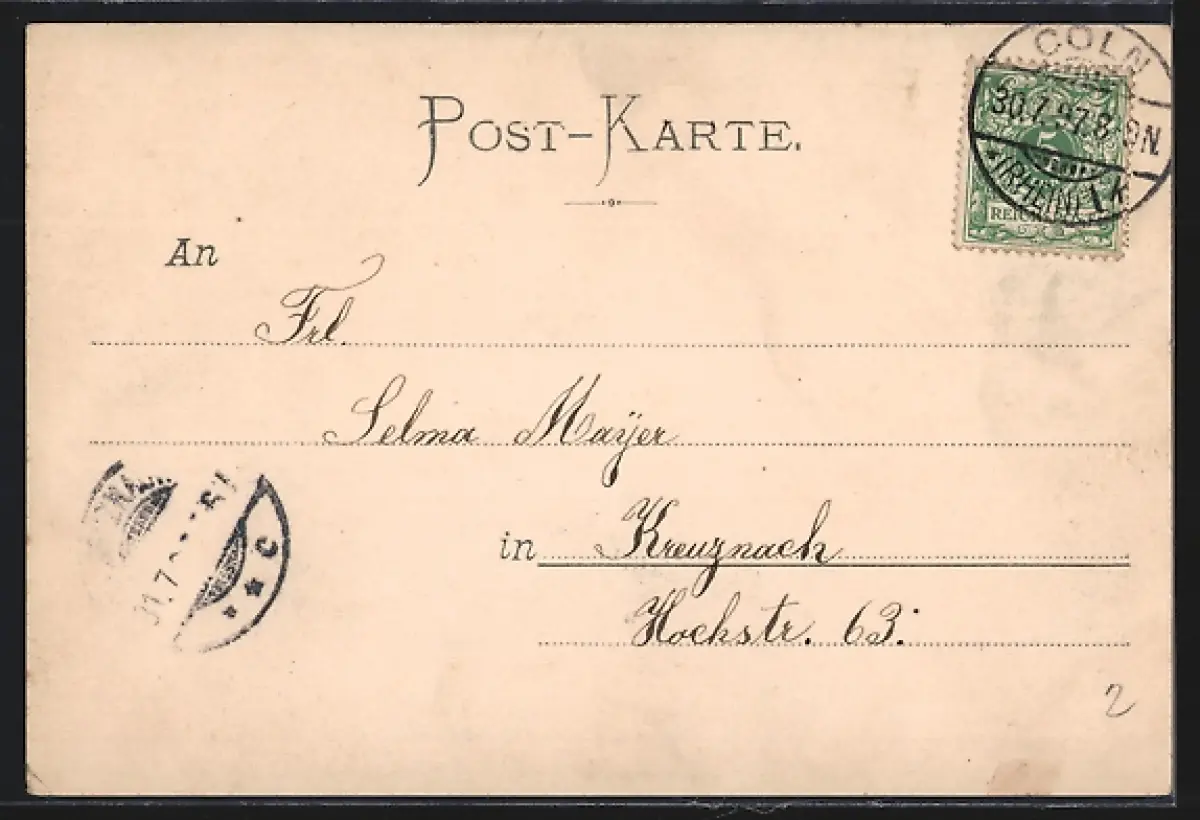 POST-KARTE.
COLN
30.7.97.8-9N.
* (RHEIN) 1 k
5
REICH
An
Frl.
Selma Mayer
in Kreuznach
Hochstr. 63.
C
2